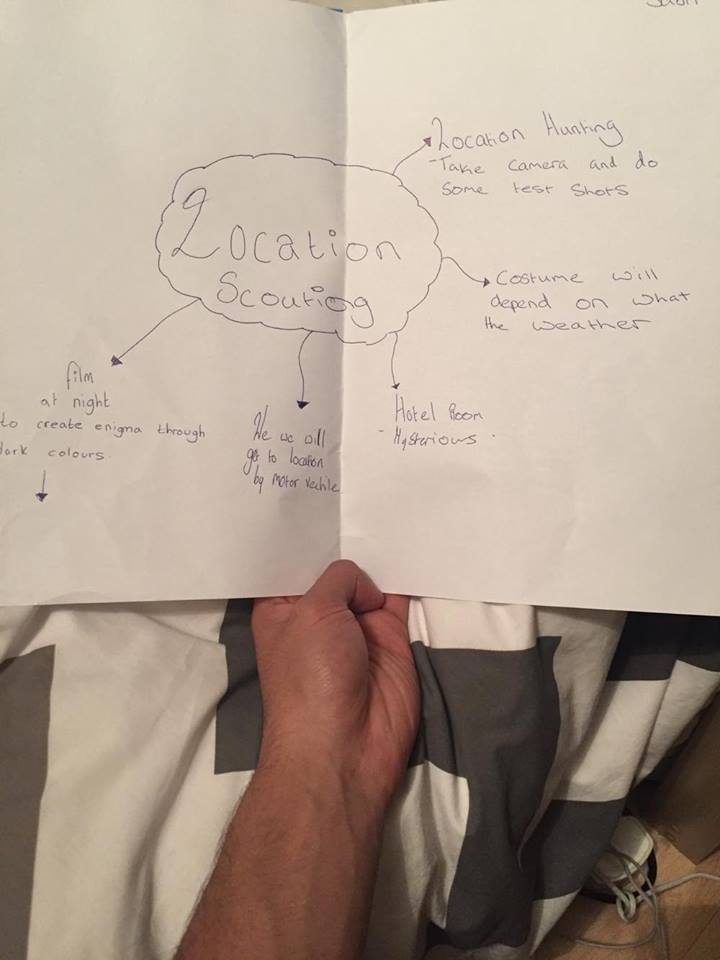 Location
Scouting
Location Hunting
-Take camera and do
some test shots
Costume will
depend on what
the weather
Hotel Room
- Mysterious.
We we will
get to location
by motor vechile
film
at night
to create enigma through
dark colours